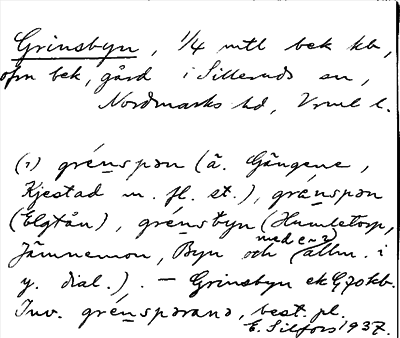 Grinsbyn, 1/4 mtl bek kb,
ofm bek, gård i Silleruds sn,
Nordmarks hd, Vrml l.
(1) grénspən (ä. Gängene,
Kjestad m. fl. st.), grénspən
(Elgtån), grénsbyn (Humletorp,
Jämnemon, Byn och (allm. i
med e~i
y. dial.). — Grinsbyn ek G70kb.
Inv. grénspəranə, best. pl.
E. Silfors 1937.